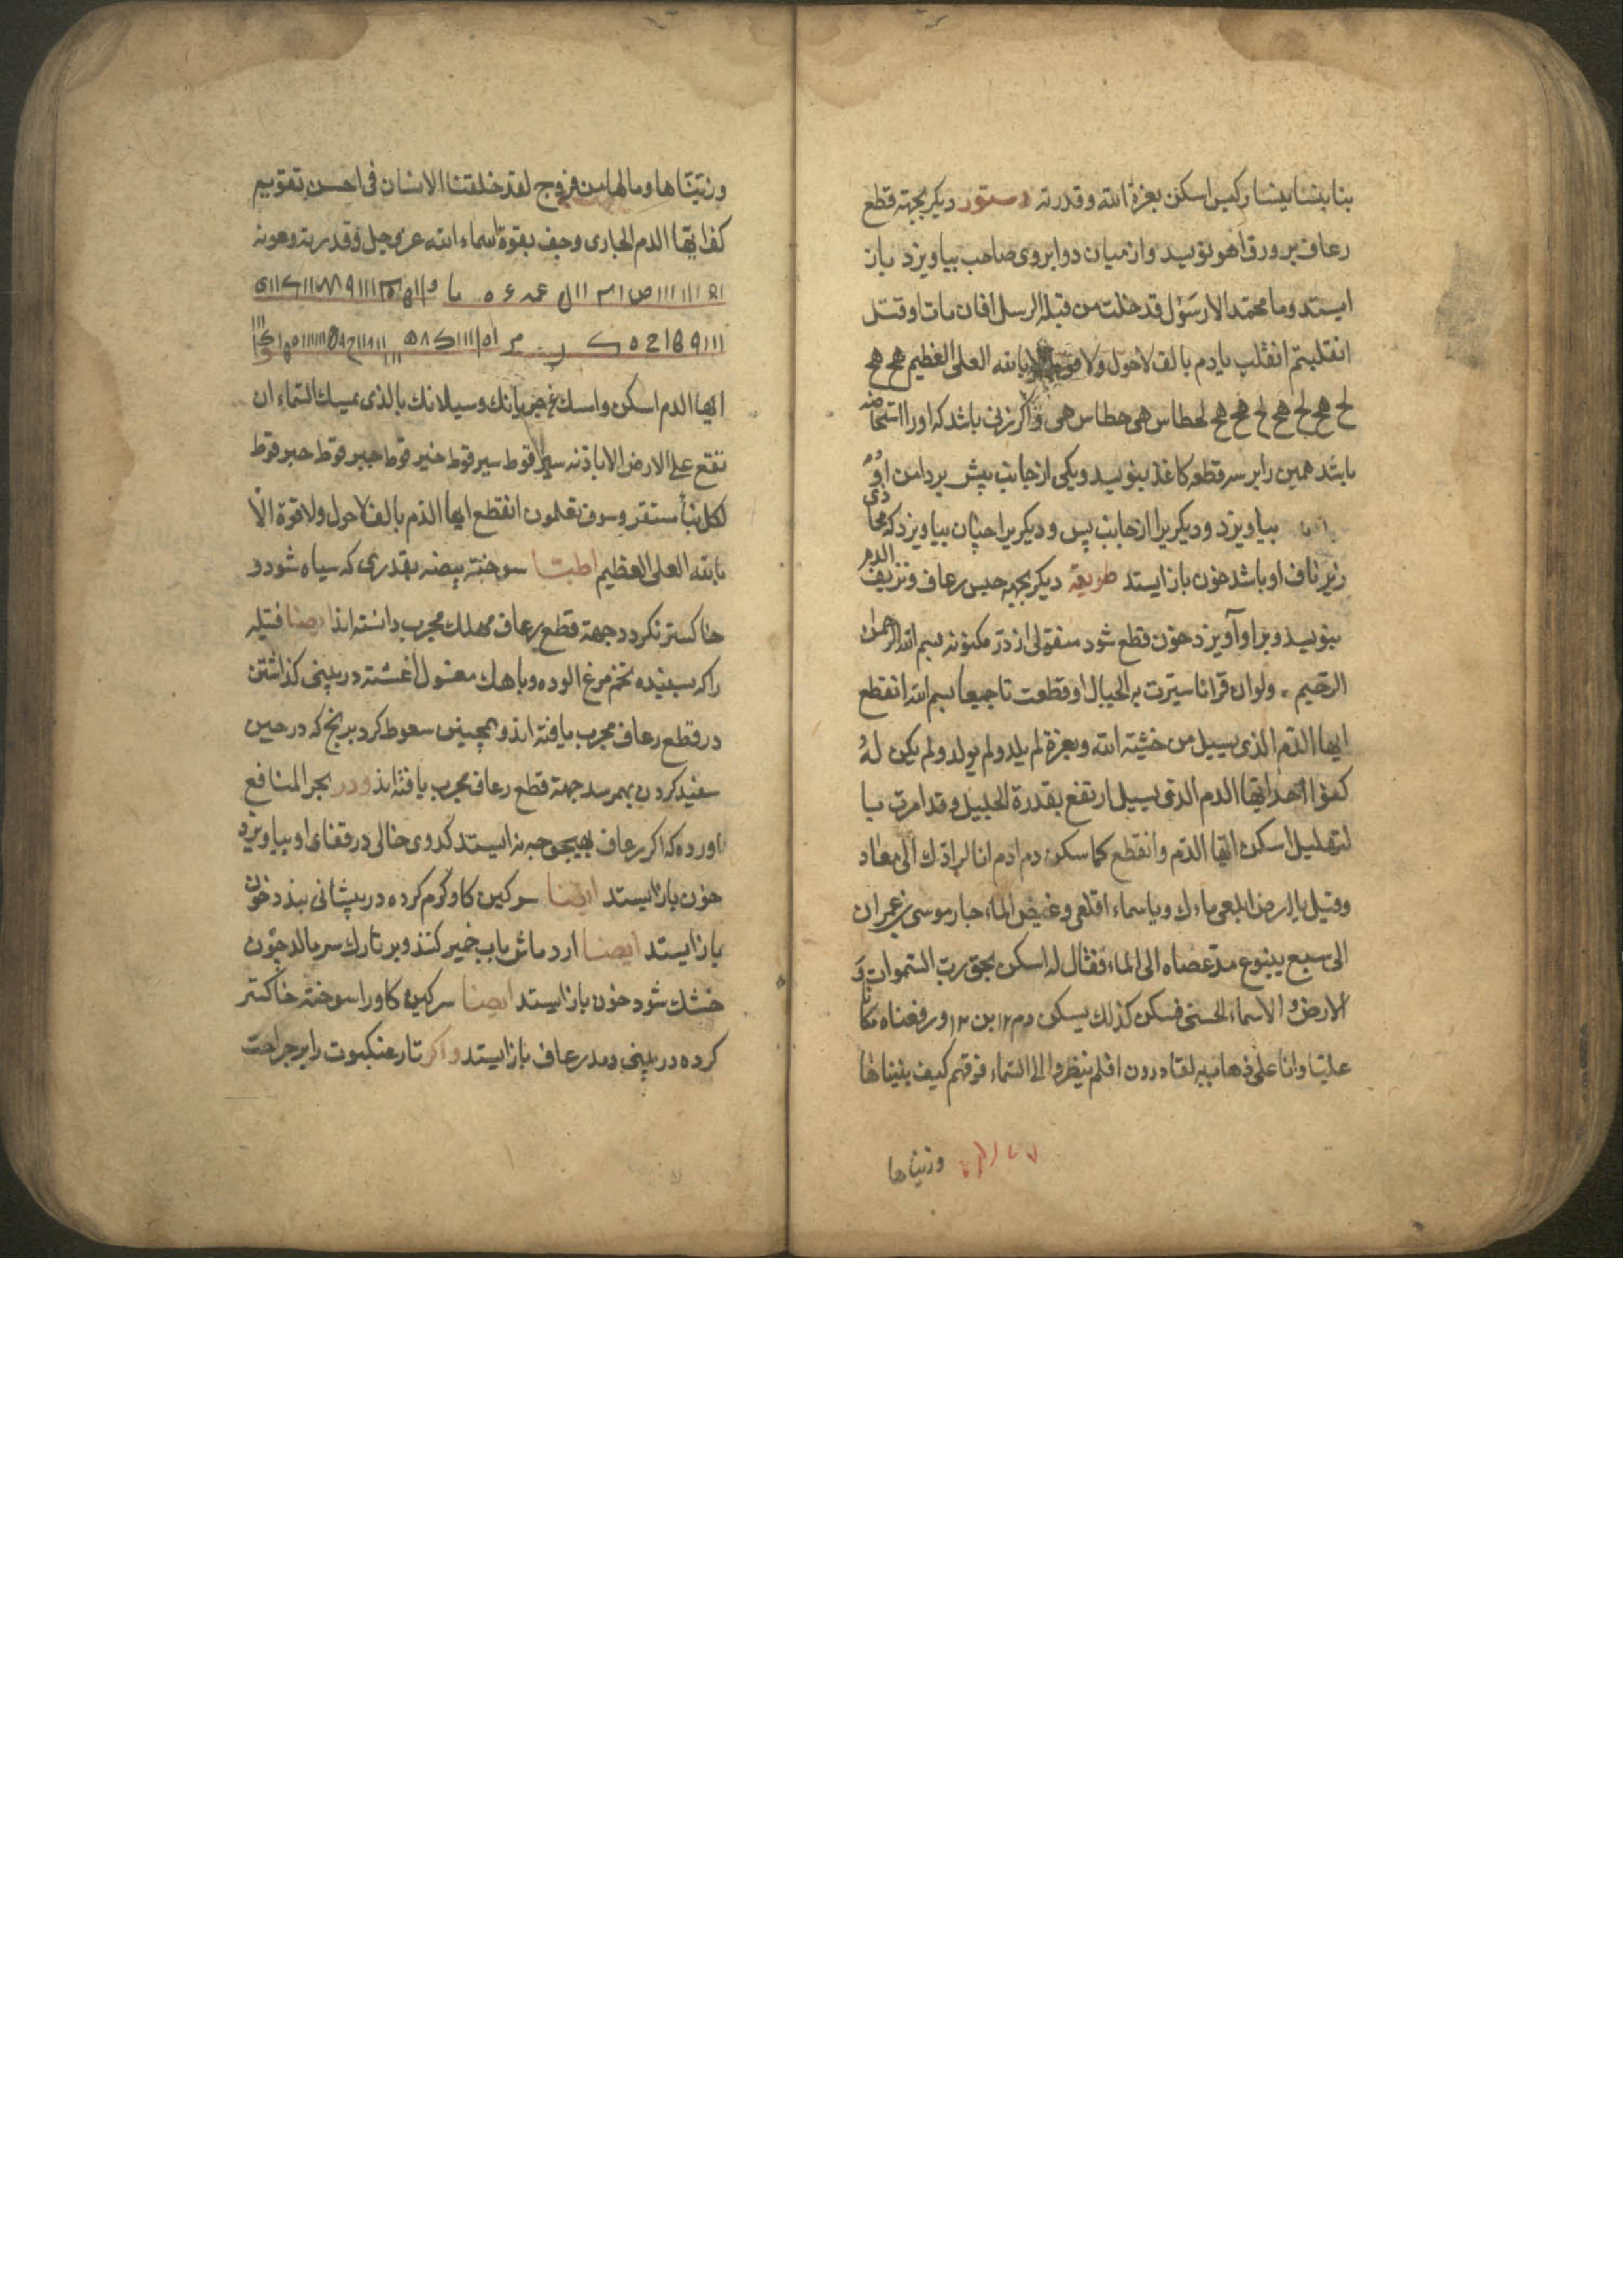 اسكن بعزة الله و قدرته دستور دیکر بجهته قطع
رعاف بر ورق اهو نویسد و از میان دو ابروی صاحب بیاویزد باز
ایستد وما محمد الا رسول قد خلت من قبله الرسل افان مات او قتل
انقلبتم انقلب یا دم بالف لاحول ولا قوة الا بالله العلی العظیم هج هج
لح هج لح هج لح هج هج لحطاس هی حطاس هی واکر زنی باشد که او را استحاضه
باشد همین را بر سر قطعه کاغذ بنویسد ویکی از جانب پیش بر دامن او
بیاویزد و دیکریرا از جانب پس و دیکریرا بیاویزد که محاذی
زیر ناف او باشد خون باز ایستد طریقه دیکر بجهه حبس رعاف و نزیف الدم
بنویسد و بر او آویزد خون قطع شود منقول از در مکنونه بسم الله الرحمن
الرحیم ولوان قرانا سیرت به الجبال او قطعت بسم الله انقطع
ایها الدم الذی یسیل من خشیته الله وبعزة لم یلد ولم یولد ولم یکن له
کفوا احد ایها الدم الذی یسیل ارتفع بقدرة الجلیل وقد امرت
اسکن ایها الدم وانقطع کما سکن دم ادم انا لرادك الی معاد
وقیل یا ارض ابلعی ماءك ویا سماء اقلعی وغیض الماء جار موسی بن عمران
الی سبع ینبوع مد عصاه الی الماء فقال له اسکن بحق رب السموات و
الارض و الاسماء الحسنی فسکن کذلك یسکن دم ١٢ بن ١٢ ورفعناه مکانا
علیا وانا علی ذهاب به لقادرون افلم ینظروا الی السماء فوقهم کیف بنیناها
وزیناها
وزیناها وما لها من فروج لقد خلقنا الانسان فی احسن تقویم
ایها الدم الجاری وجف بقوة اسماء الله عز وجل وقدرته وعونه
ایها الدم اسکن وامسك عن جریانك وسیلانك بالذی یمسك السماء ان
تقع علی الارض الا باذنه قوط سیر قوط خیر قوط جبر قوط حبر قوط
لکل نبأ مستقر وسوف تعلمون انقطع ایها الدم بالف لاحول ولا قوة الا
بالله العلی العظیم اطبا سوخته بیضه بقدری که سیاه شود و
خاکستر نکردد جهة قطع رعاف مهلك مجرب دانسته اند ایضا فتیله
را که بسفیده تخم مرغ الوده و باهك مغسول اغشته در بینی کذاشتن
در قطع رعاف مجرب یافته اند و همچنین سعوط کرد برنج که در حین
سفید کردن بهمرسد جهة قطع رعاف مجرب یافته اند و در بحر المنافع
اورده که اکر رعاف بهیچ وجه نه ایستد کدوی خالی در قفای او بیاویزد
خون باز ایستد ایضا سرکین کاو کرم کرده در پیشانی بندد خون
باز ایستد ایضا ارد ماش باب خمیر کند و بر تارك سر مالد چون
خشك شود خون باز ایستد ایضا سرکین کاو را سوخته خاکستر
کرده در بینی دمد رعاف باز ایستد و اکر تار عنکبوت را بر جراحت